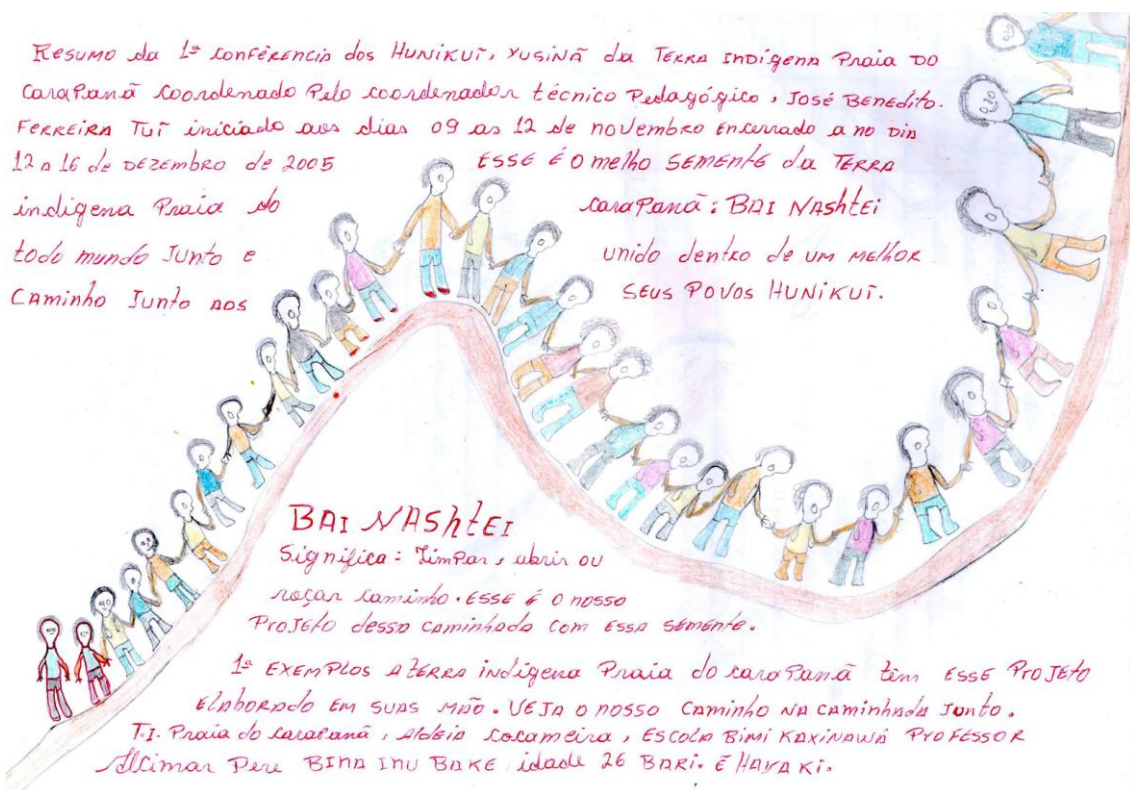 Resumo da 1ª conferencia dos HUNIKUĨ, YUSINÃ da TERRA Indígena Praia DO
CaraPanã coordenado Pelo coordenador técnico Pedagógico, José Benedito.
FERREIRA TUĨ iniciado aos dias 09 as 12 de novembro Encerrado a no Dia
12 a 16 de DEZEMBRO de 2005 ESSE É O melho SEMENTE da TERRA
indígena Praia do caraPanã: BAI NAShtEi
todo mundo Junto e unido dentro de UM MELHOR
Caminho Junto AOS SEUS POVOS HUNIKUĨ.
BAI NAShtEI
Significa: Limpar, abrir OU
roçar caminho. ESSE É O nosso
PROJEtO dessa caminhada com ESSA SEMENTE.
1º EXEMPLOS A TERRA indígena Praia do caraPanã têm ESSE PROJEtO
ElABORADO EM SUAS MÃO. VEJA O nosso Caminho NA CAMINHADA JUNTO.
T.I. Praia do caraPanã, AldEiA Cocameira, ESCOLA BIMI KAXINAWÁ PROFESSOR
Alcimar Pere BINA INU BAKE idade 26 BARI. É HAYA KI.